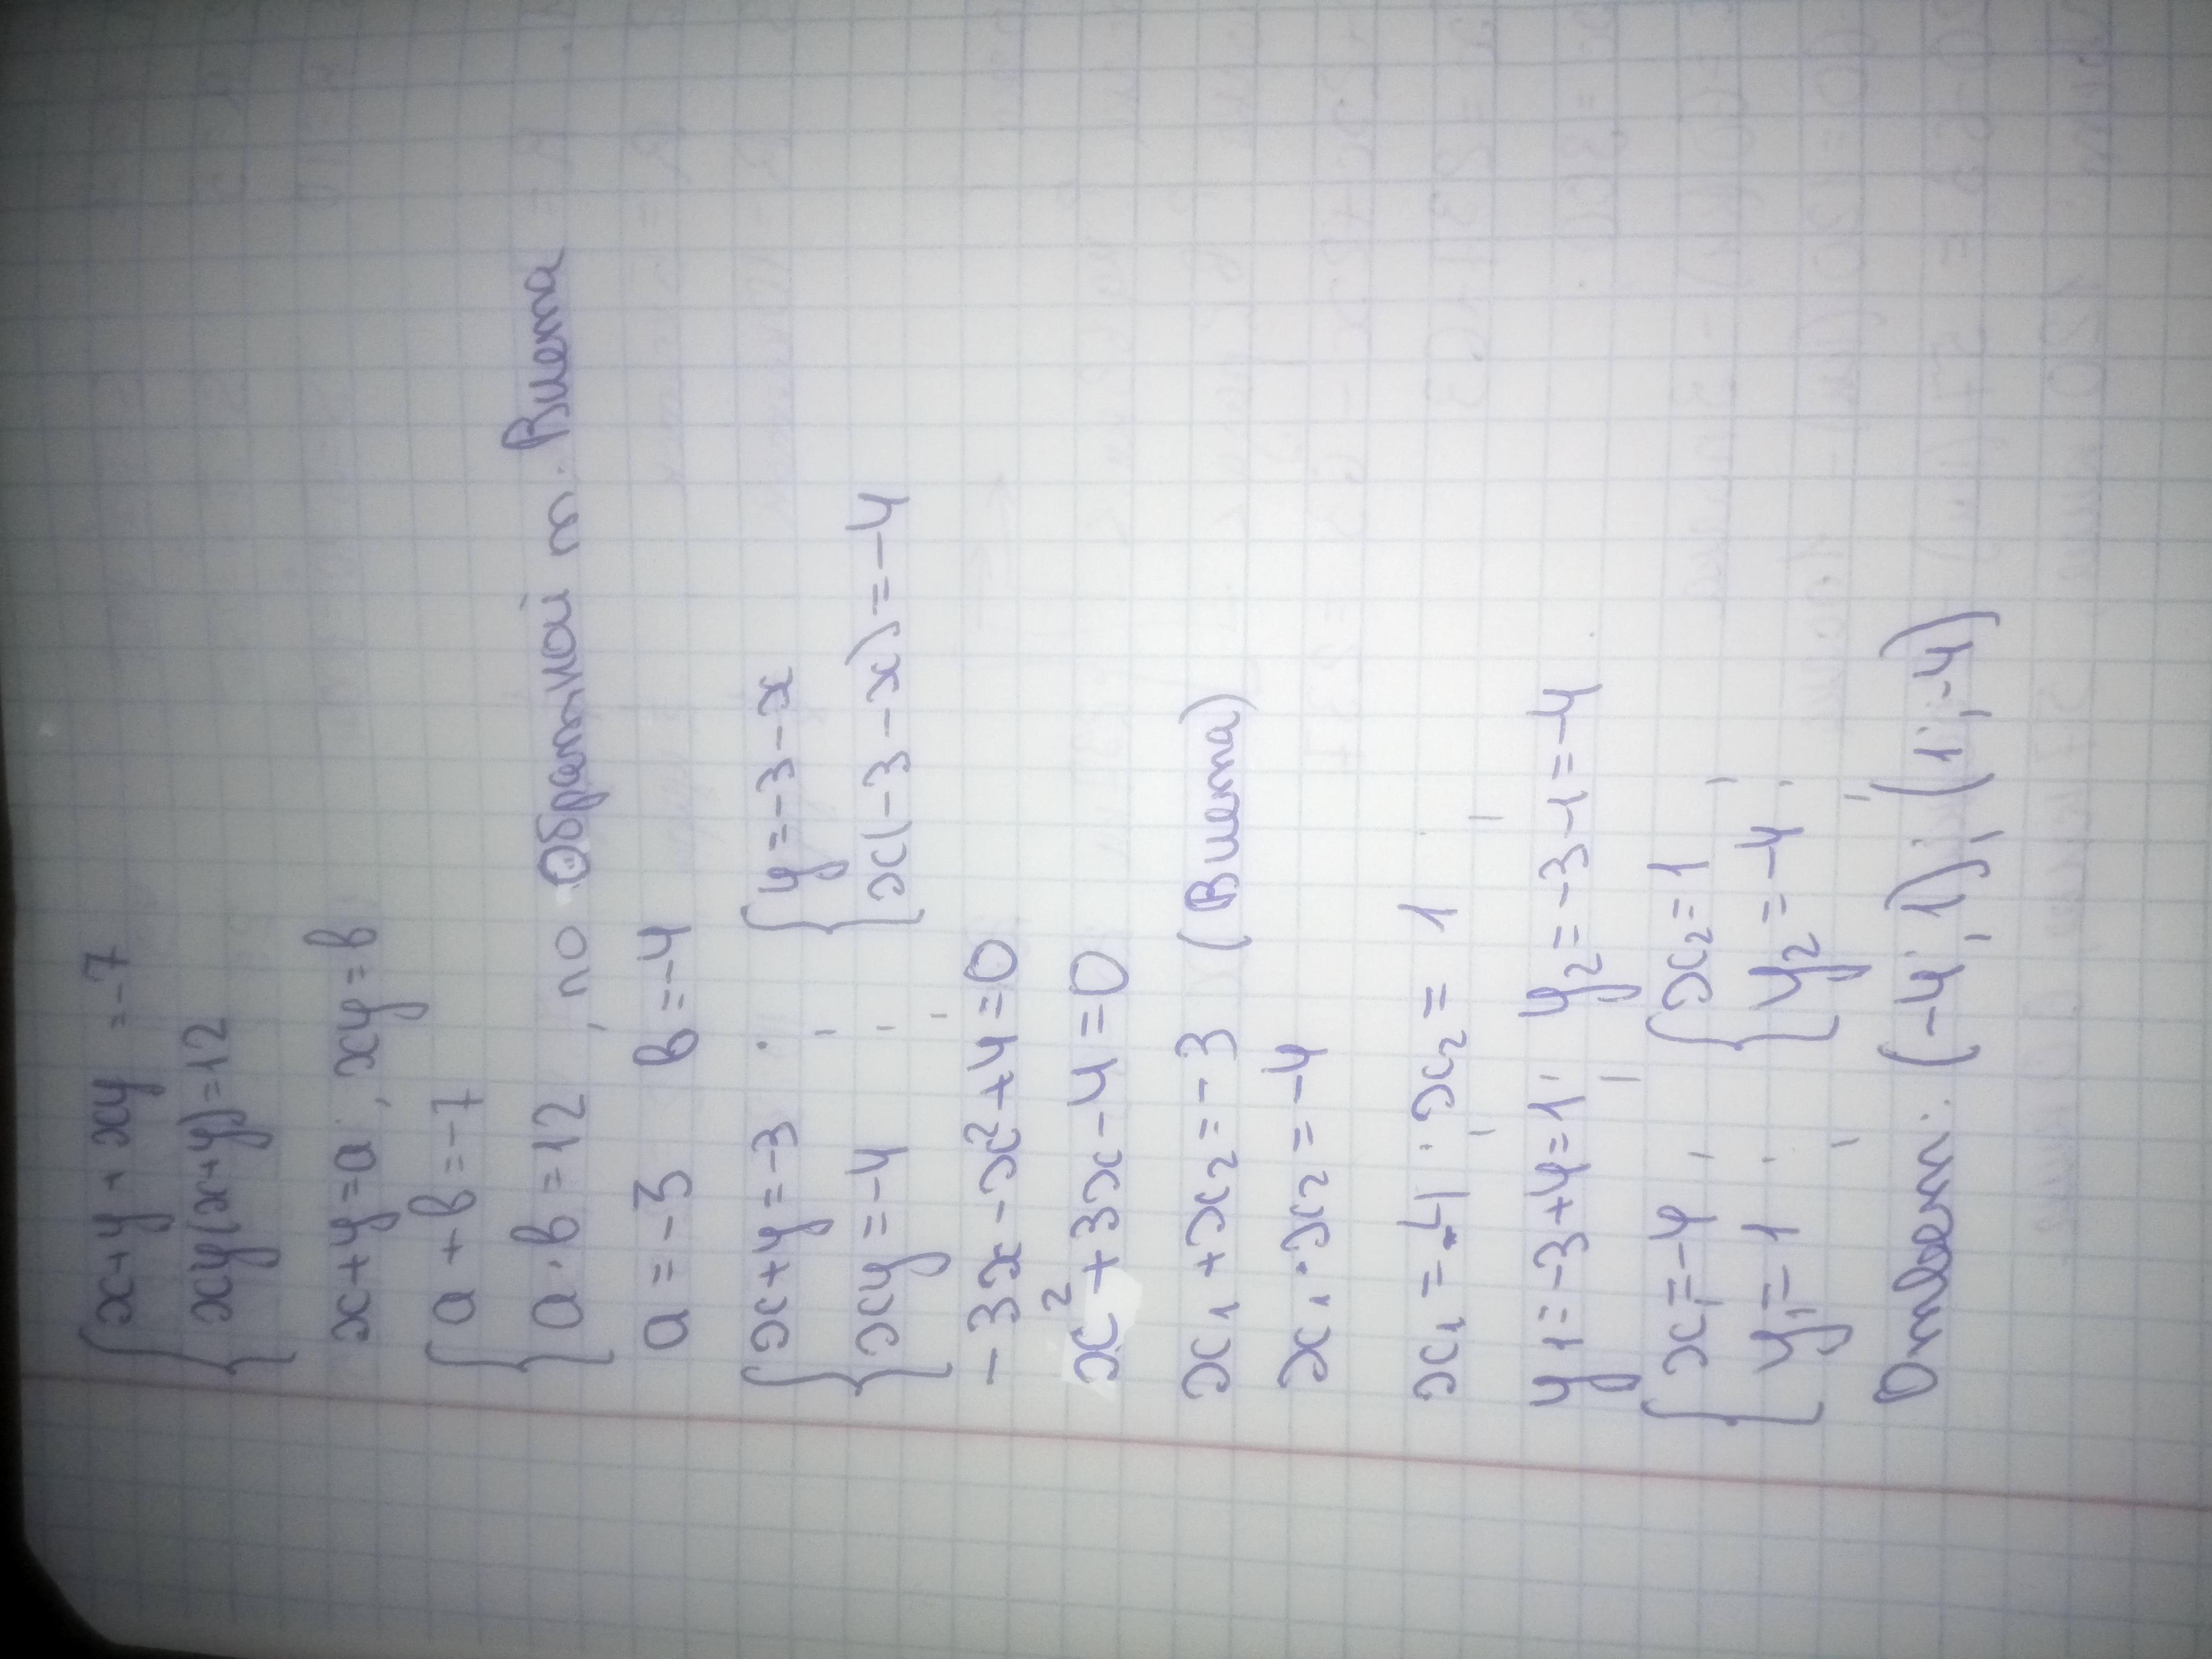 { x+y+xy=-7
{ xy(x+y)=12
x+y=a; xy=в
{ a+в=-7
{ a·в=12, по Обратной т. Виета
a=-3 в=-4
{ x+y=-3 ; { y=-3-x
{ xy=-4 ; { x(-3-x)=-4
-3x-x²+4=0;
x²+3x-4=0
x₁+x₂=-3 (Виета)
x₁·x₂=-4
x₁=-4; x₂=1
y₁=-3+4=1; y₂=-3-1=-4
{ x₁=-4; { x₂=1;
{ y₁=1; { y₂=-4;
Ответ: (-4;1); (1;-4)